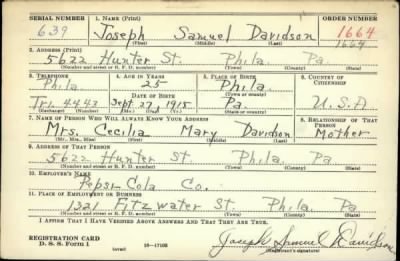 SERIAL NUMBER 1. NAME (Print) ORDER NUMBER
639 Joseph Samuel Davidson 1664
(First) (Middle) (Last) 1664
2. ADDRESS (Print)
5622 Hunter St. Phila. Pa.
(Number and street or R. F. D. number) (Town) (County) (State)
3. TELEPHONE 4. AGE IN YEARS 5. PLACE OF BIRTH 6. COUNTRY OF CITIZENSHIP
Phila 25 Phila. U.S.A
DATE OF BIRTH (Town or county)
Tri. 4443 Sept. 27, 1915 Pa.
(Exchange) (Number) (Mo.) (Day) (Yr.) (State or country)
7. NAME OF PERSON WHO WILL ALWAYS KNOW YOUR ADDRESS 8. RELATIONSHIP OF THAT PERSON
Mrs. Cecilia Mary Davidson Mother
(Mr., Mrs., Miss) (First) (Middle) (Last)
9. ADDRESS OF THAT PERSON
5622 Hunter St. Phila. Pa
(Number and street or R. F. D. number) (Town) (County) (State)
10. EMPLOYER'S NAME
Pepsi-Cola Co.
11. PLACE OF EMPLOYMENT OR BUSINESS
1321 Fitzwater St. Phila. Pa
(Number and street or R. F. D. number) (Town) (County) (State)
I AFFIRM THAT I HAVE VERIFIED ABOVE ANSWERS AND THAT THEY ARE TRUE.
REGISTRATION CARD
D. S. S. Form 1 (over) 16—17105 Joseph Samuel Davidson
(Registrant's signature)